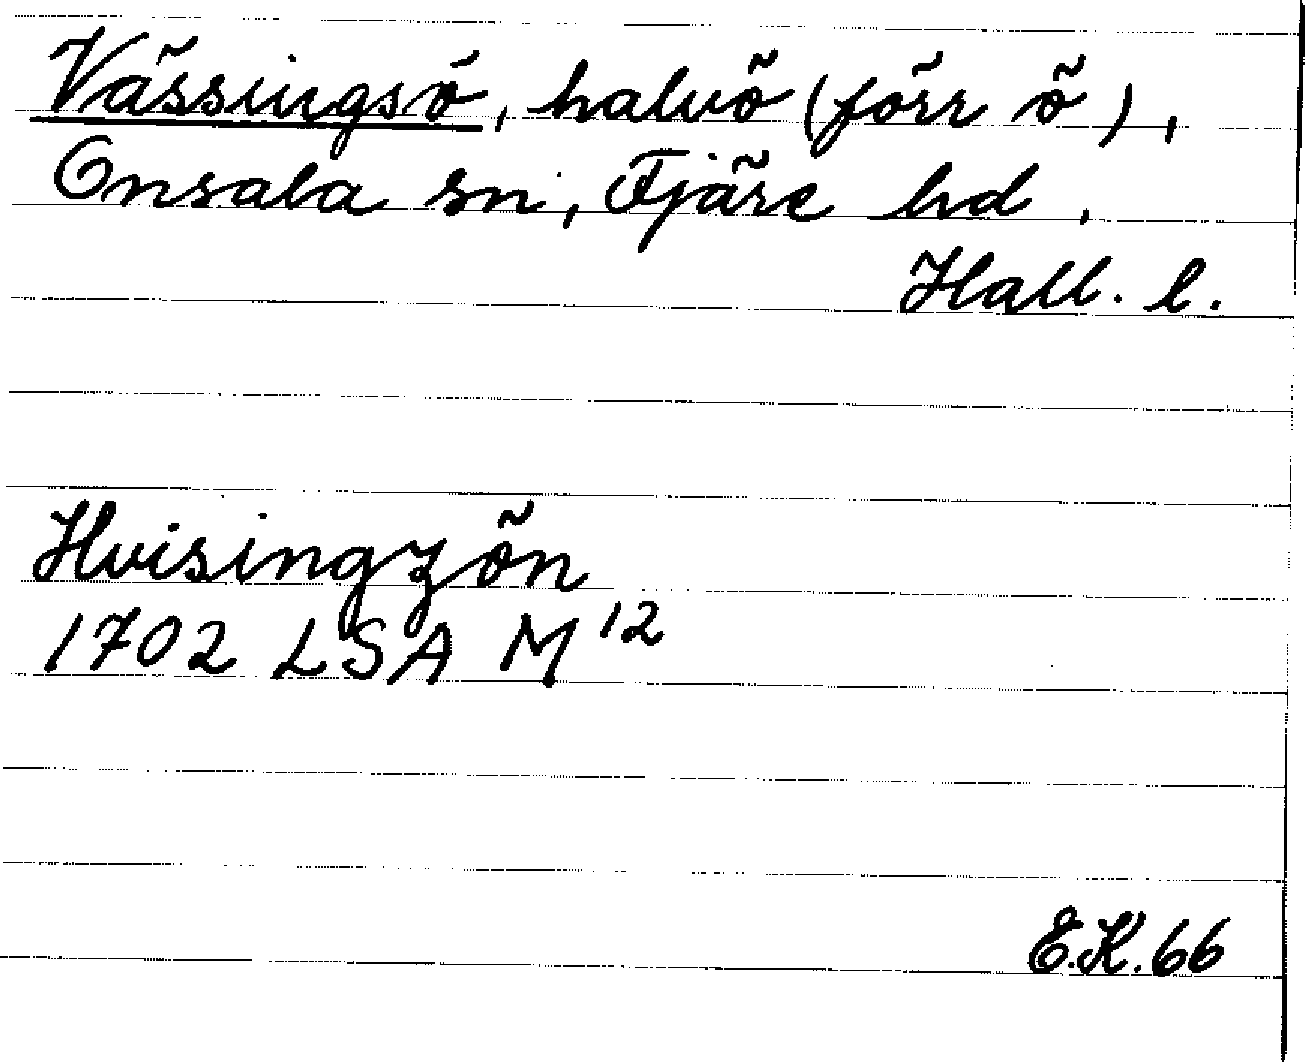 Vässingsö, halvö (förr ö),
Onsala sn, Fjäre hd,
Hall. l.
Hvisingzön
1702 LSA M 12
E.K. 66